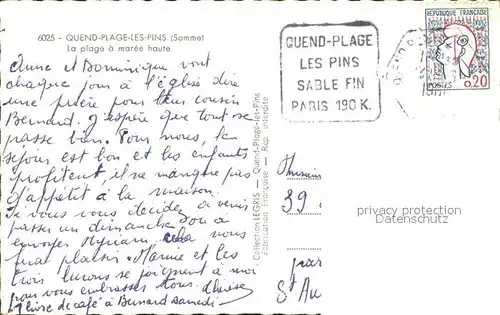 6025 - QUEND-PLAGE-LES-PINS (Somme)
La plage à marée haute
Anne et Dominique vont
chaque jour à l'église dire
une prière pour leur cousin
Bernard. J'espère que tout se
passe bien. Pour nous, le
séjour est bon et les enfants
profitent, il ne manque pas
d'appétit à la maison.
Si vous vous décidez à venir
passer un dimanche ou à
envoyer Myriam cela nous
fera plaisir. Mamie et les
trois lurons se joignent à moi
pour vous embrasser tous.
1 livre de café à Bernard samedi
Collection LEGRIS - Quend-Plage-les-Pins
Fabrication Française - Rep. interdite
QUEND-PLAGE
LES PINS
SABLE FIN
PARIS 190 K.
REPUBLIQUE FRANÇAISE
POSTES 0,20
39
privacy protection
Datenschutz
par
St Au